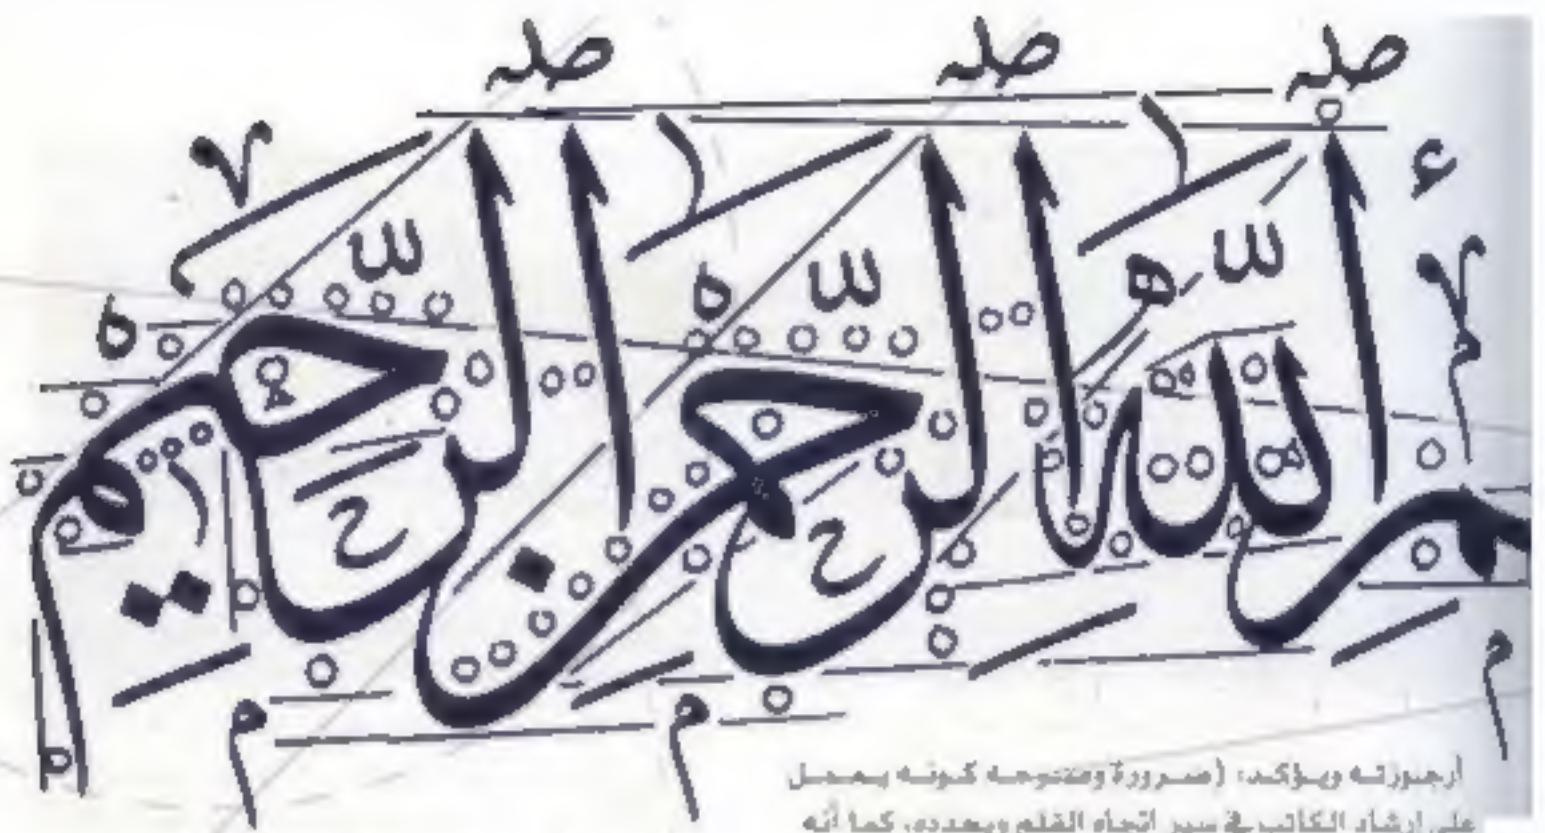 ـم الله الرحمن الرحيم
أرجوزته ويؤكد: (ضرورة كونه يعمل
على إرشاد الكاتب في سير اتجاه القلم ويحدده، كما أنه